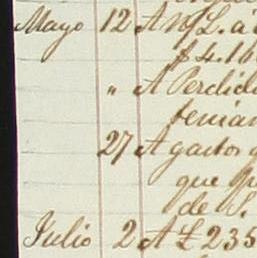 Mayo 12 A n/L. a
$4.16
" A Perdid
tenian
27 A gastos
que
de S.
Julio 2 A £235